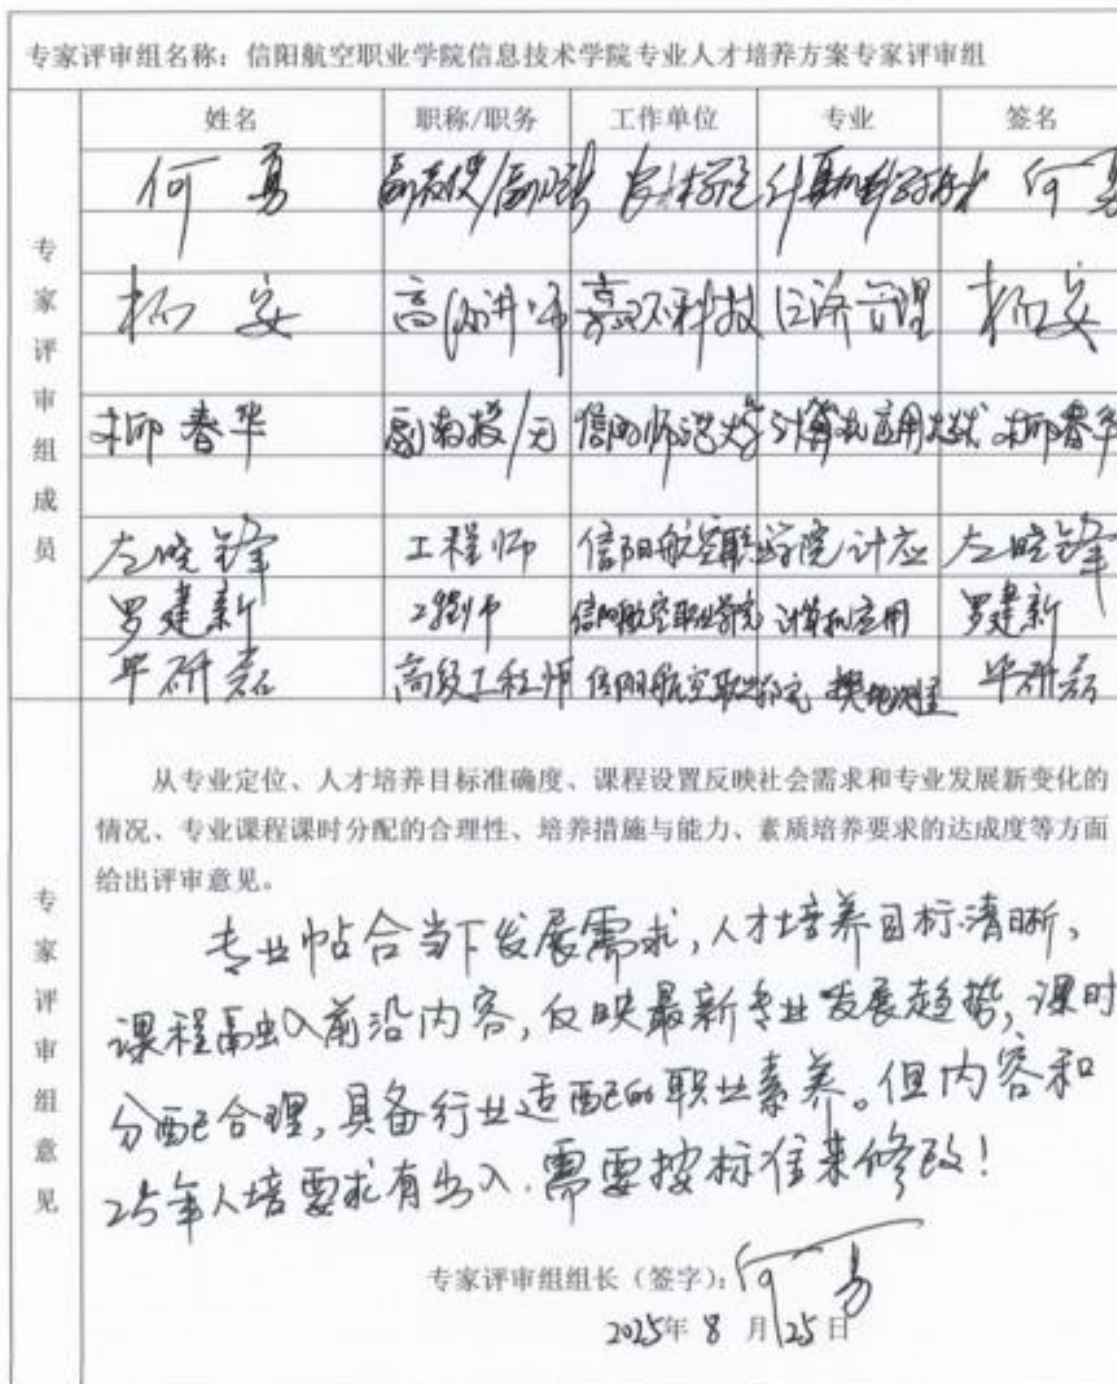 专家评审组名称：信阳航空职业学院信息技术学院专业人才培养方案专家评审组
姓名 职称/职务 工作单位 专业 签名
何勇 副教授/副院长 计算机科学与技术 何勇
杨安 高级讲师 科技 经济管理 杨安
柳春华 副教授/无 信阳师范大学 计算机应用技术 柳春华
左晓锋 工程师 信阳航空职业学院 计应 左晓锋
罗建新 工程师 信阳航空职业学院 计算机应用 罗建新
毕研岩 高级工程师 信阳航空职业学院 毕研岩
专家评审组成员
从专业定位、人才培养目标准确度、课程设置反映社会需求和专业发展新变化的
情况、专业课程课时分配的合理性、培养措施与能力、素质培养要求的达成度等方面
给出评审意见。
专业帖合当下发展需求，人才培养目标清晰，
课程融入前沿内容，反映最新专业发展趋势，课时
分配合理，具备行业适配的职业素养。但内容和
25年人培要求有出入，需要按标准来修改！
专家评审组意见
专家评审组组长（签字）：何勇
2025年 8 月 25 日